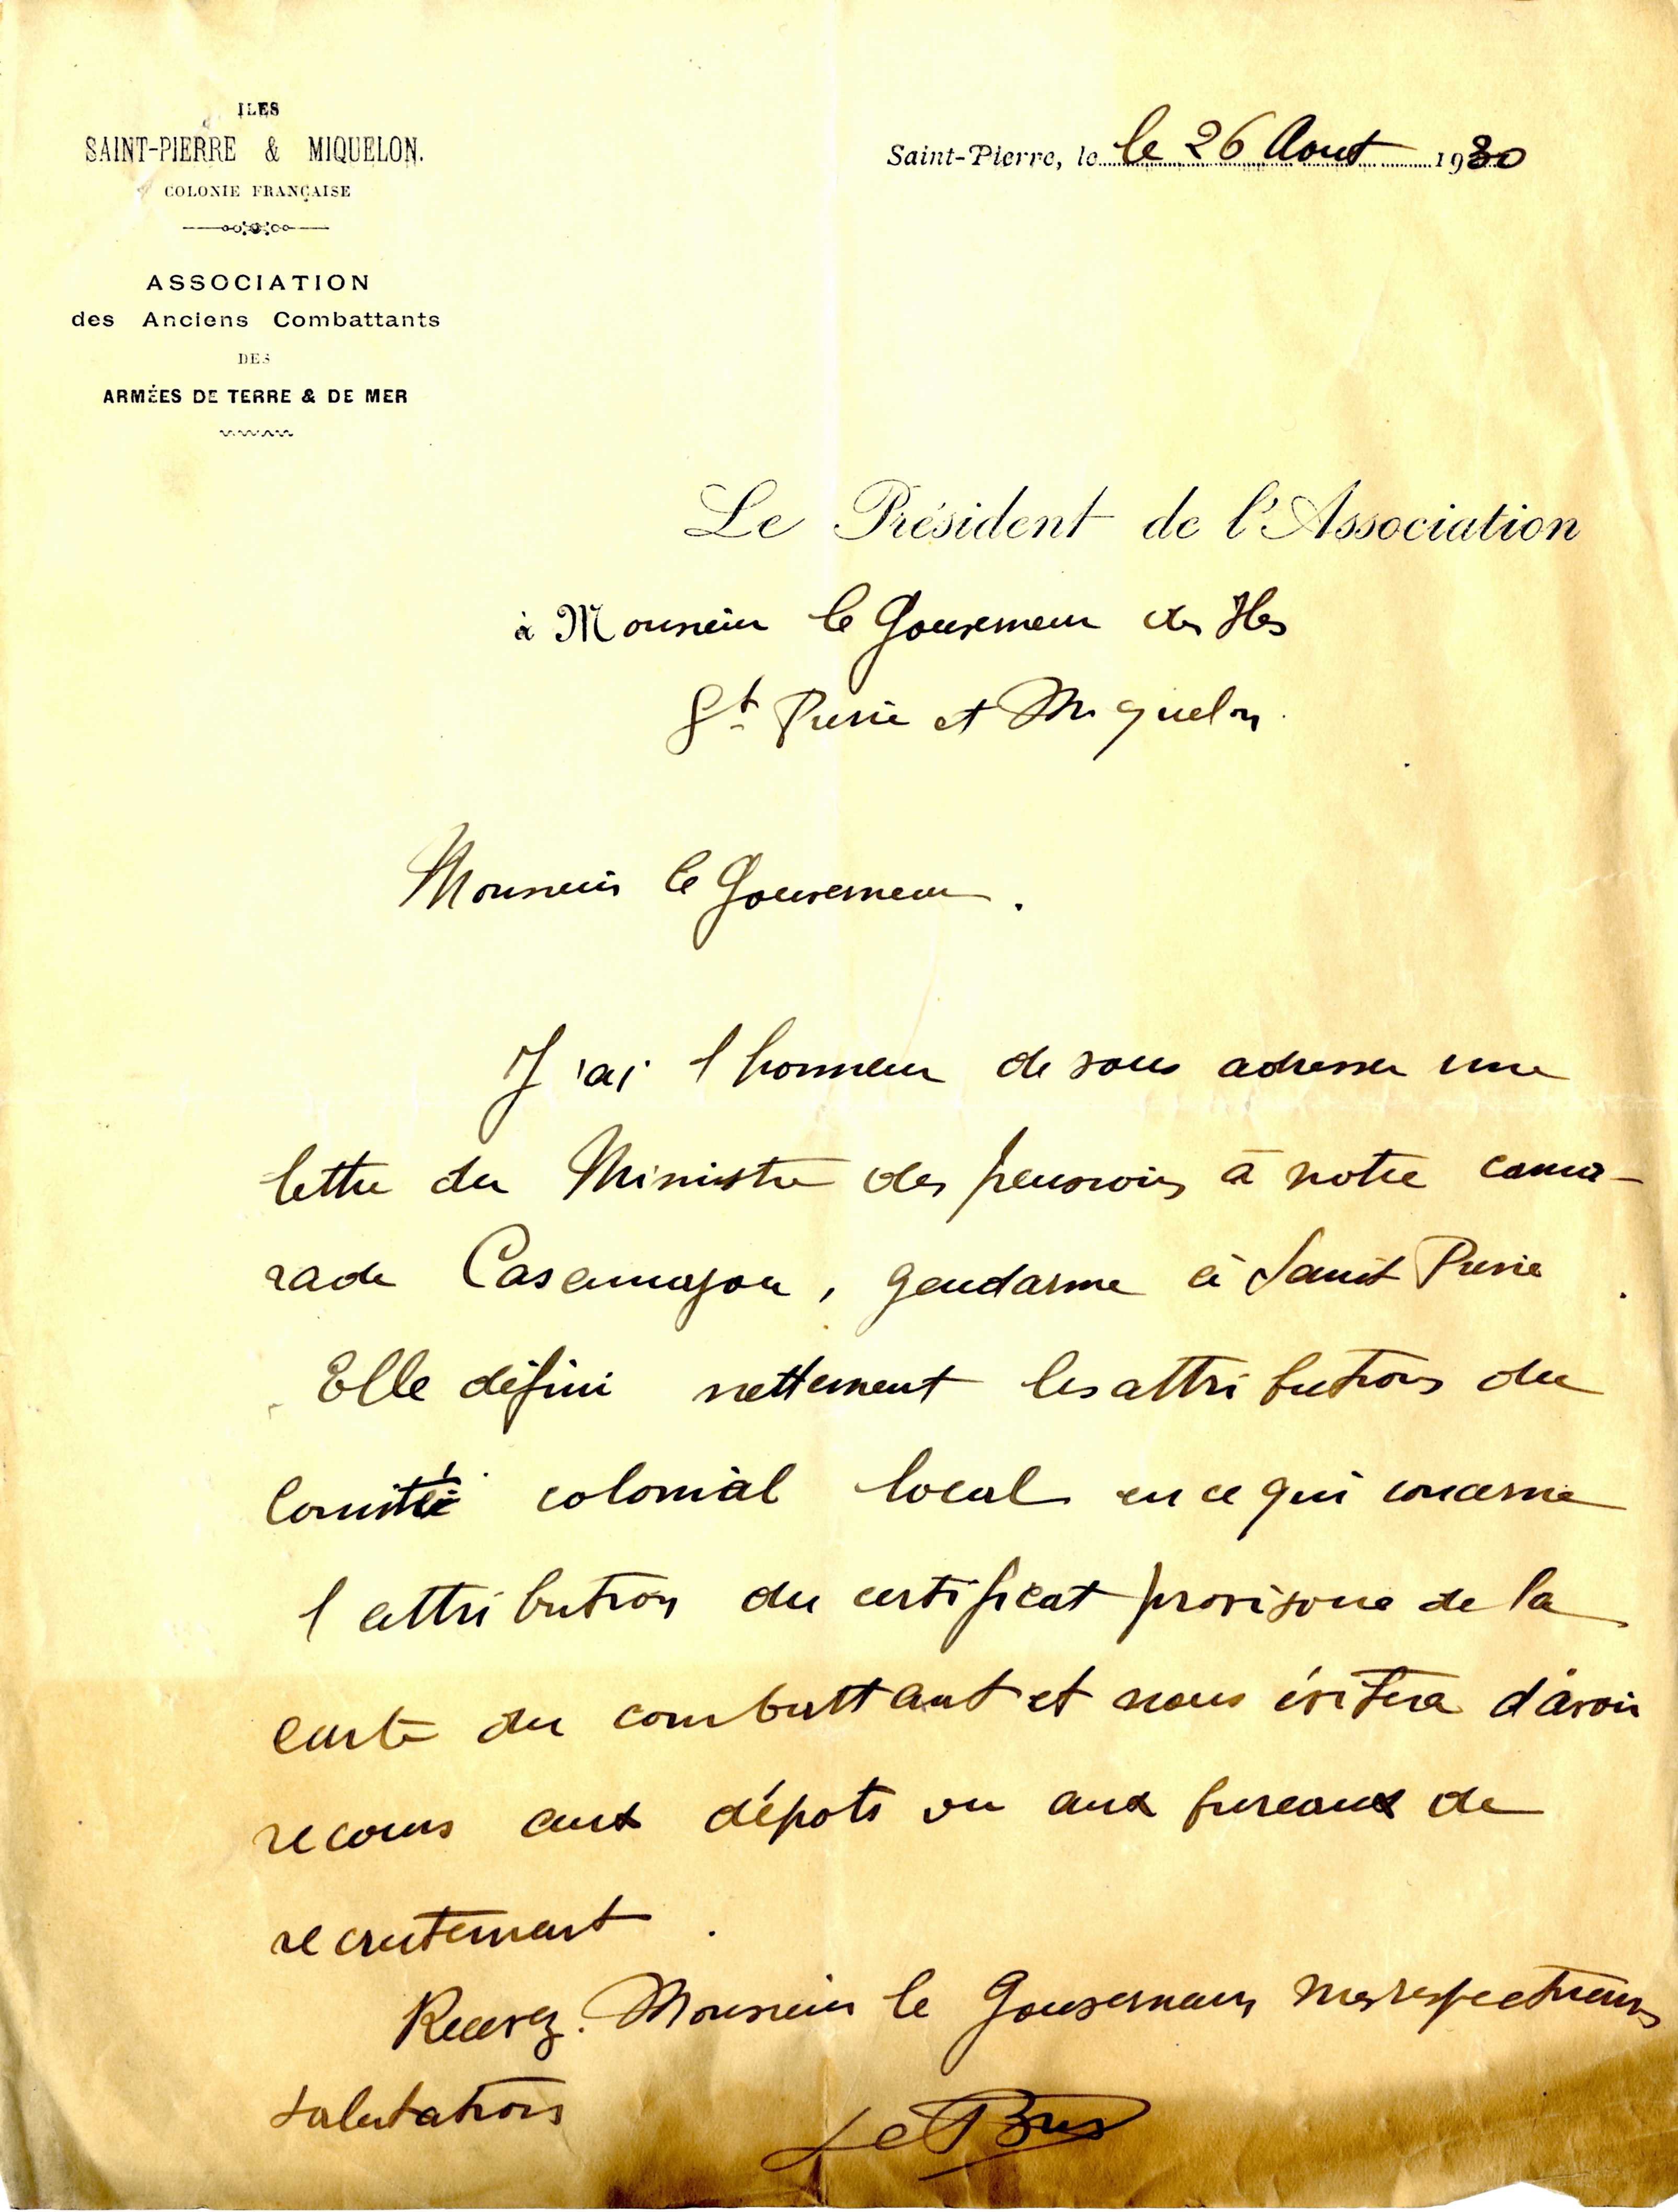 ILES
SAINT-PIERRE & MIQUELON.
COLONIE FRANÇAISE
ASSOCIATION
des Anciens Combattants
DES
ARMÉES DE TERRE & DE MER
Saint-Pierre, le le 26 Aout 1930
Le Président de l'Association
à Monsieur le Gouverneur des Iles
St Pierre et Miquelon.
Monsieur le Gouverneur.
J'ai l honneur de vous adresser une
lettre du Ministre des pensions à notre cama-
rade Casemajou, gendarme à Saint Pierre.
Elle défini nettement les attributions du
Comité colonial local en ce qui concerne
l attribution du certificat provisoire de la
carte du combattant et nous évitera d'avoir
recours aux dépots ou aux bureaux de
recrutement.
Recevez. Monsieur le Gouverneur mes respectueuses
salutations
Le Bras